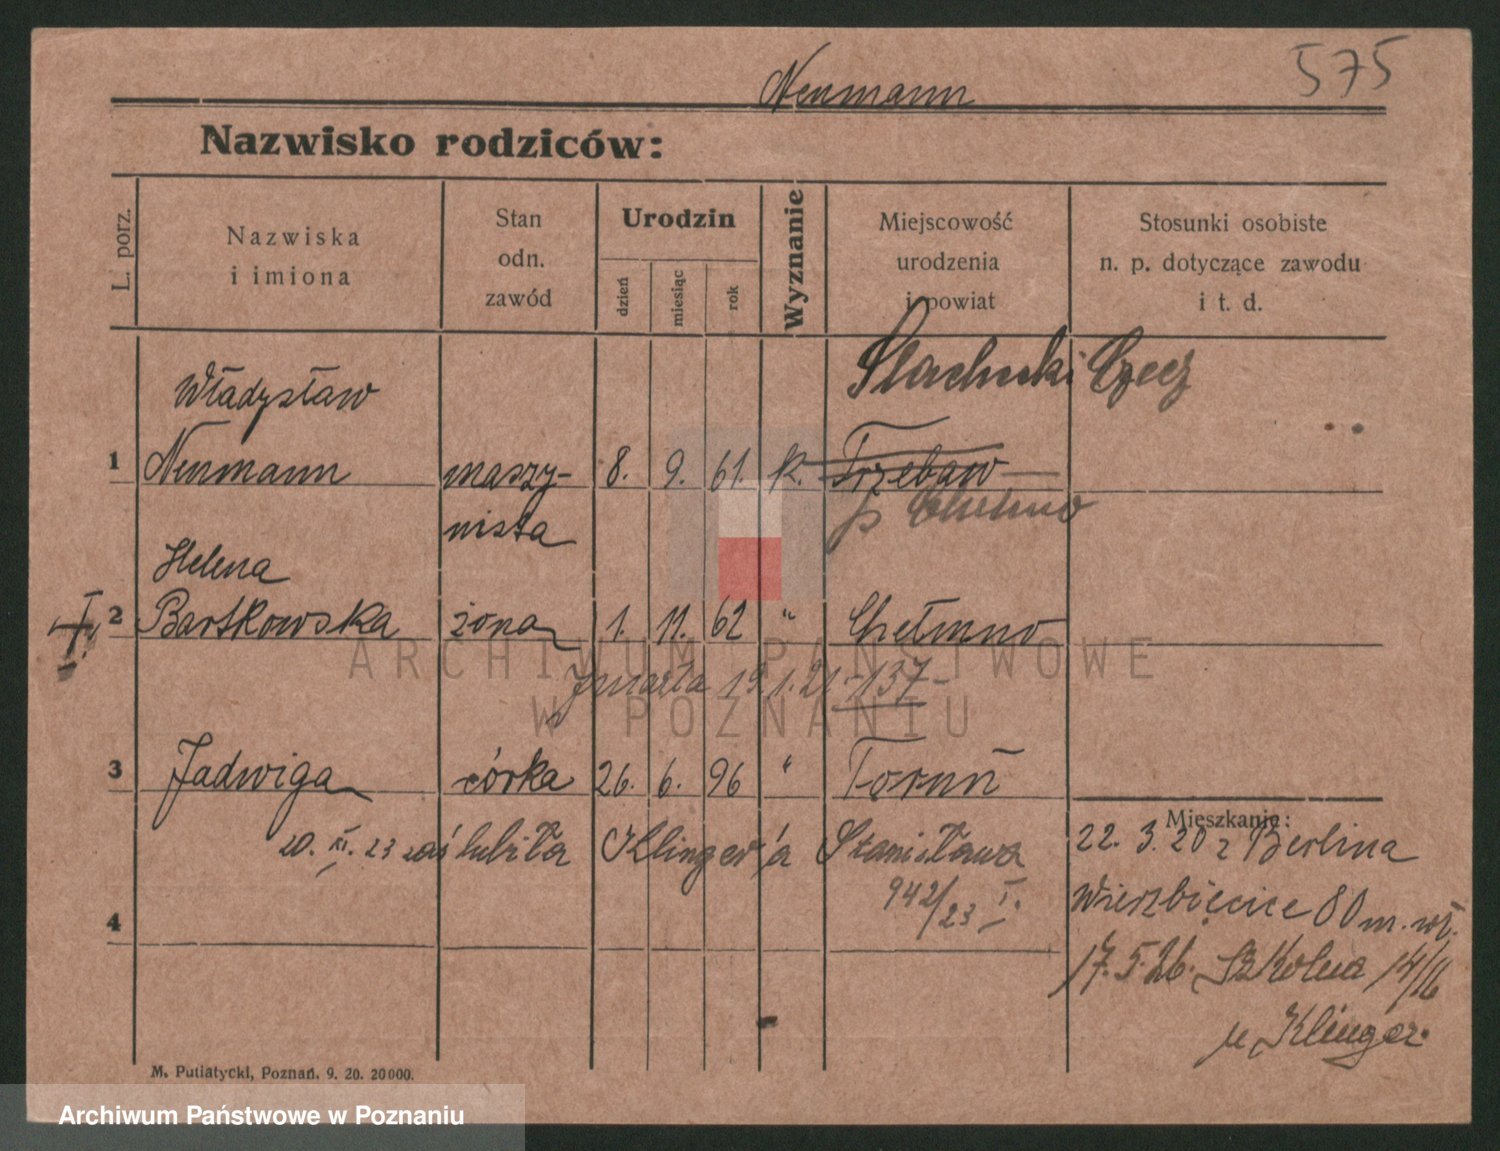 Neumann 575
Nazwisko rodziców:
L. porz.
Nazwiska
i imiona
Stan
odn.
zawód
Urodzin
dzień
miesiąc
rok
Wyznanie
Miejscowość
urodzenia
i powiat
Stosunki osobiste
n. p. dotyczące zawodu
i t. d.
Władysław
1 Neumann maszy- 8. 9. 61. k. Trzebaw
nista p Chełmno
Helena
2 Bartkowska żona 1. 11. 62 " Chełmno
Zmarła 19.1.21.-137-
3 Jadwiga córka 26. 6. 96 " Toruń
Mieszkanie:
20. XI. 23 zaślubiła Klingera Stanisława
942/23 I.
22. 3. 20 z Berlina
Wierzbięcice 80 m. wł.
17. 5. 26. Szkolna 14/II
u Klinger.
4
M. Putiatycki, Poznań. 9. 20. 20000.
ARCHIWUM PAŃSTWOWE
W POZNANIU
Archiwum Państwowe w Poznaniu